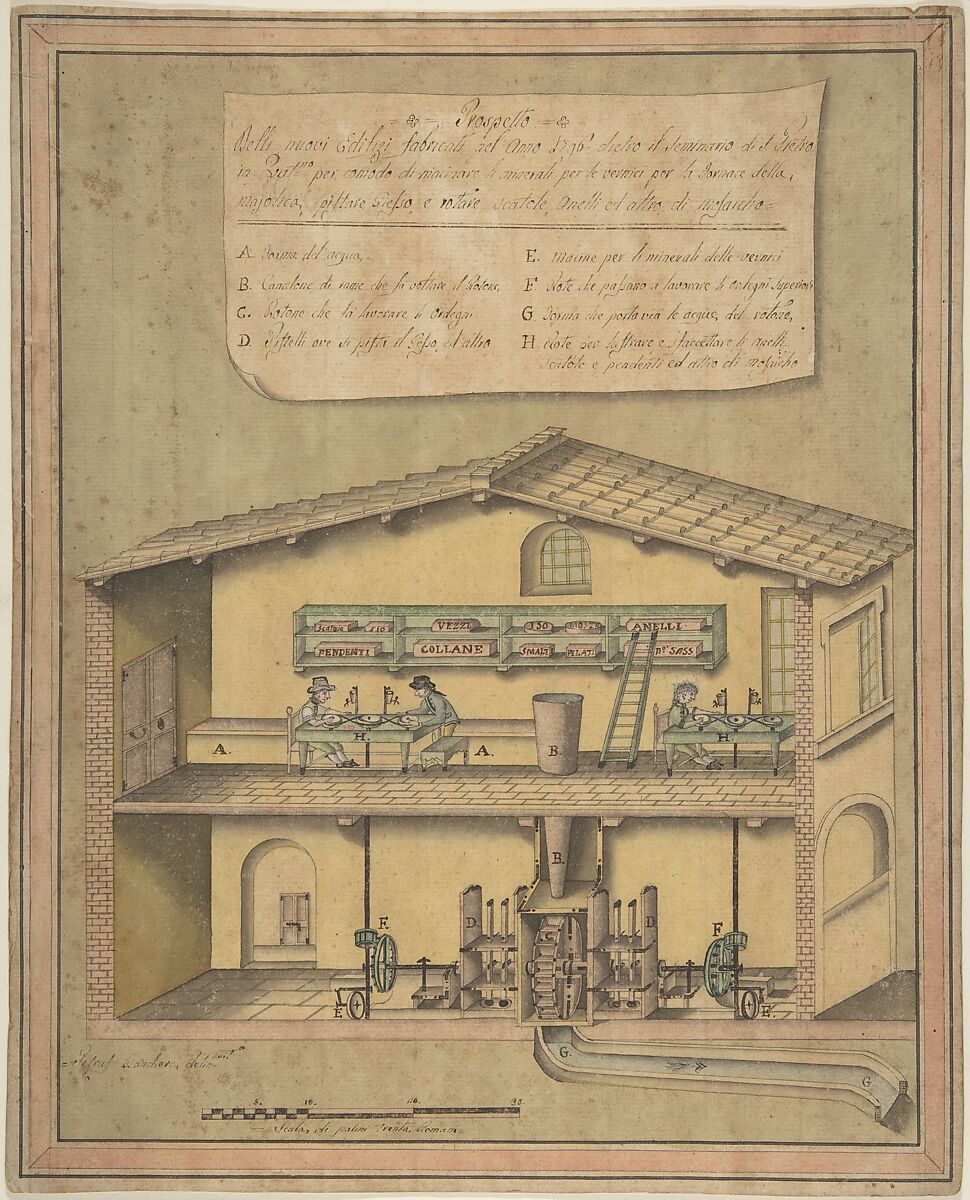 Prospetto
Delli nuovi Edifizi fabricati nel Anno 1796 dietro il Seminario di S. Pietro
in Vat.no per comodo di macinare li minerali per le vernici per la Fornace della
majolica, pistare Gesso, e rotare Scatole, Anelli ed altro di mosaicho
A. Forma del acqua,
B. Canalone di rame che fà voltare il Rotone,
C. Rotone che fà lavorare li ordegni
D. Pistelli ove si pista il Gesso, ed altro
E. Macine per li minerali delle vernici
F. Rote che passano a lavorare li ordegni Superiori
G. Forma che porta via le acque, del rotone,
H. Rote per lustrare e sfaccettare li anelli
Scatole e pendenti ed altro di mosaicho
Scatole
VEZZI
ANELLI
PENDENTI
COLLANE
SMALT
PILATI
A.
H.
A.
B.
H.
B.
D.
C
D
F.
F
E
E.
G.
G
5. 10. 30.
Scala, di palmi trenta, Roman